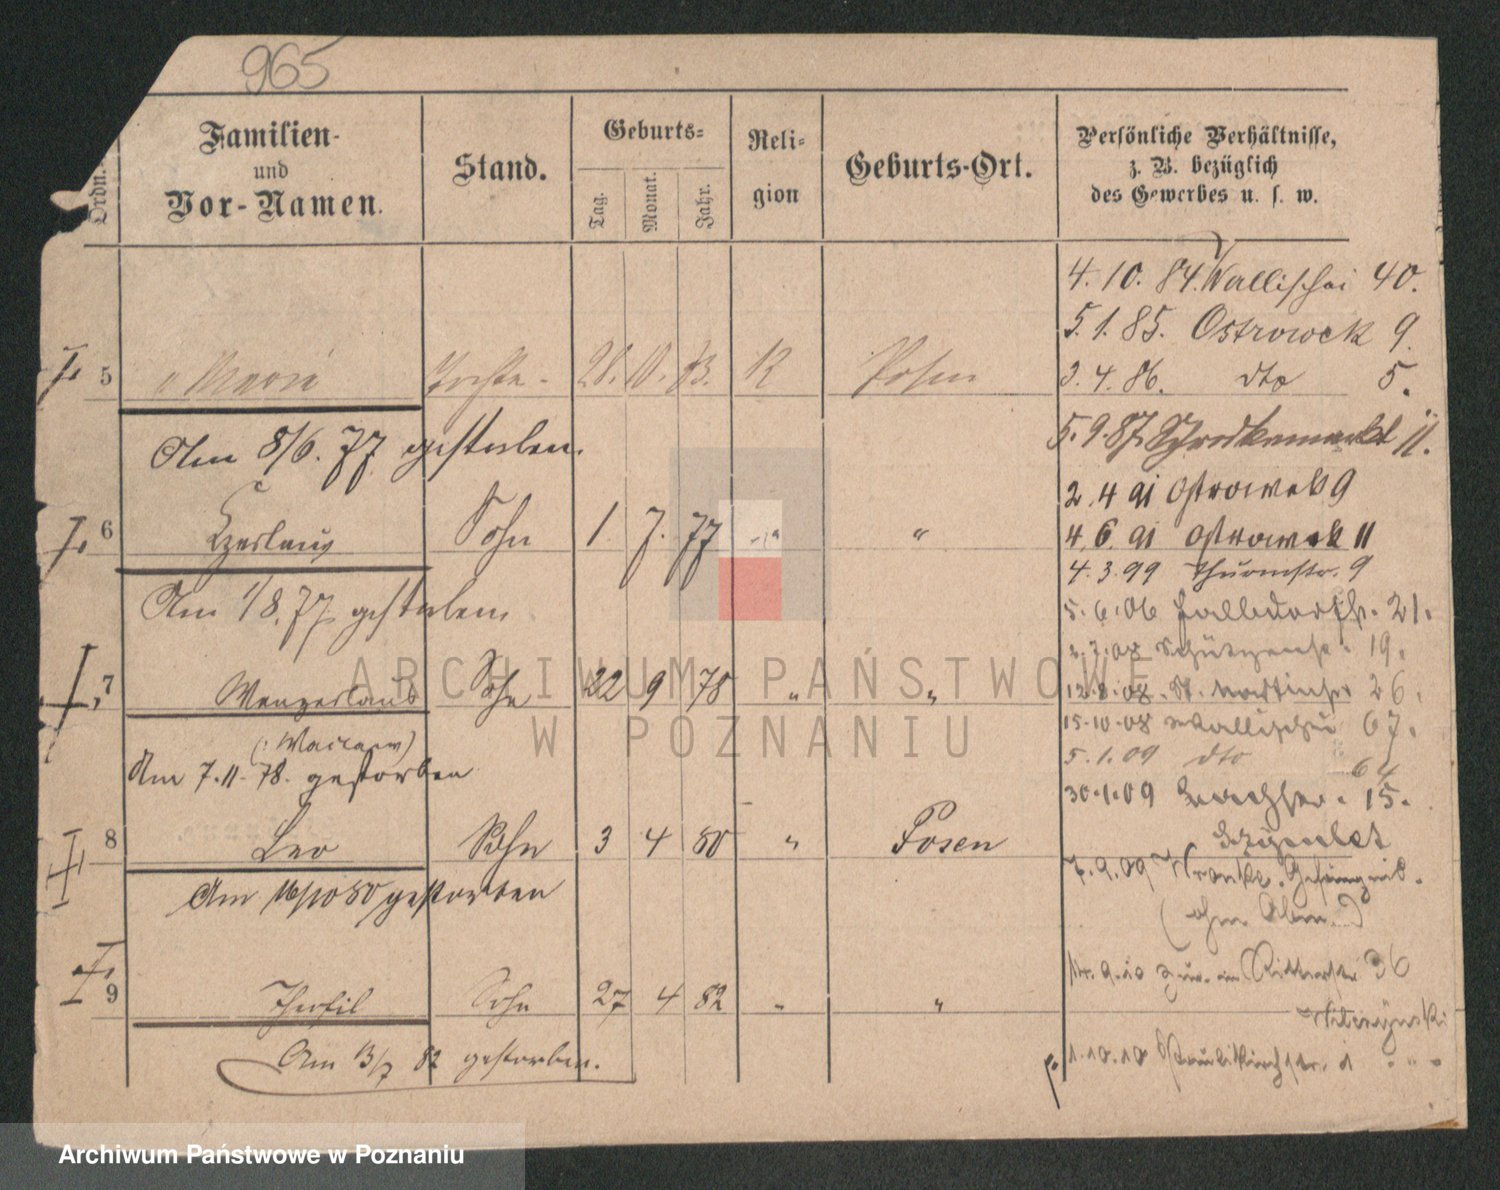 965
Ordn.
Familien-
und
Vor-Namen.
Stand.
Geburts-
Tag.
Monat.
Jahr.
Reli-
gion
Geburts-Ort.
Persönliche Verhältnisse,
z. B. bezüglich
des Gewerbes u. s. w.
4. 10. 84. Wallischei 40.
5. 1. 85. Ostrowek 9.
5 " Maria Tochter 28. 10. 73. K Posen
3. 4. 86. dto 5.
Am 8/6. 77 gestorben.
5. 9. 87. Schrodkamarkt 11.
2. 4 91 Ostrowek 9
6 Czeslaus Sohn 1. 7. 77 " "
4. 6. 91 Ostrowek 11
4. 3. 99 Thurmstr. 9
Am 1/8. 77 gestorben.
5. 6. 06 21.
19.
7 Wenzeslaus Sohn 22 9 78 " "
12. 8. 08. St. Martinstr 26.
(: Waclaw)
15. 10. 08 Wallischei 67.
Am 7. 11. 78. gestorben
5. 1. 09 dto 64
30. 1. 09 15.
8 Leo Sohn 3 4 80 " Posen
7. 9. 09 Wronke. Gefängnis.
Am 16/10 80 gestorben
9 Theofil Sohn 27 4 82 " "
Ritterstr 36
Am 13/7 82 gestorben.
1. 10. 10 Paulikirchstr. 1
ARCHIWUM PAŃSTWOWE
W POZNANIU
Archiwum Państwowe w Poznaniu